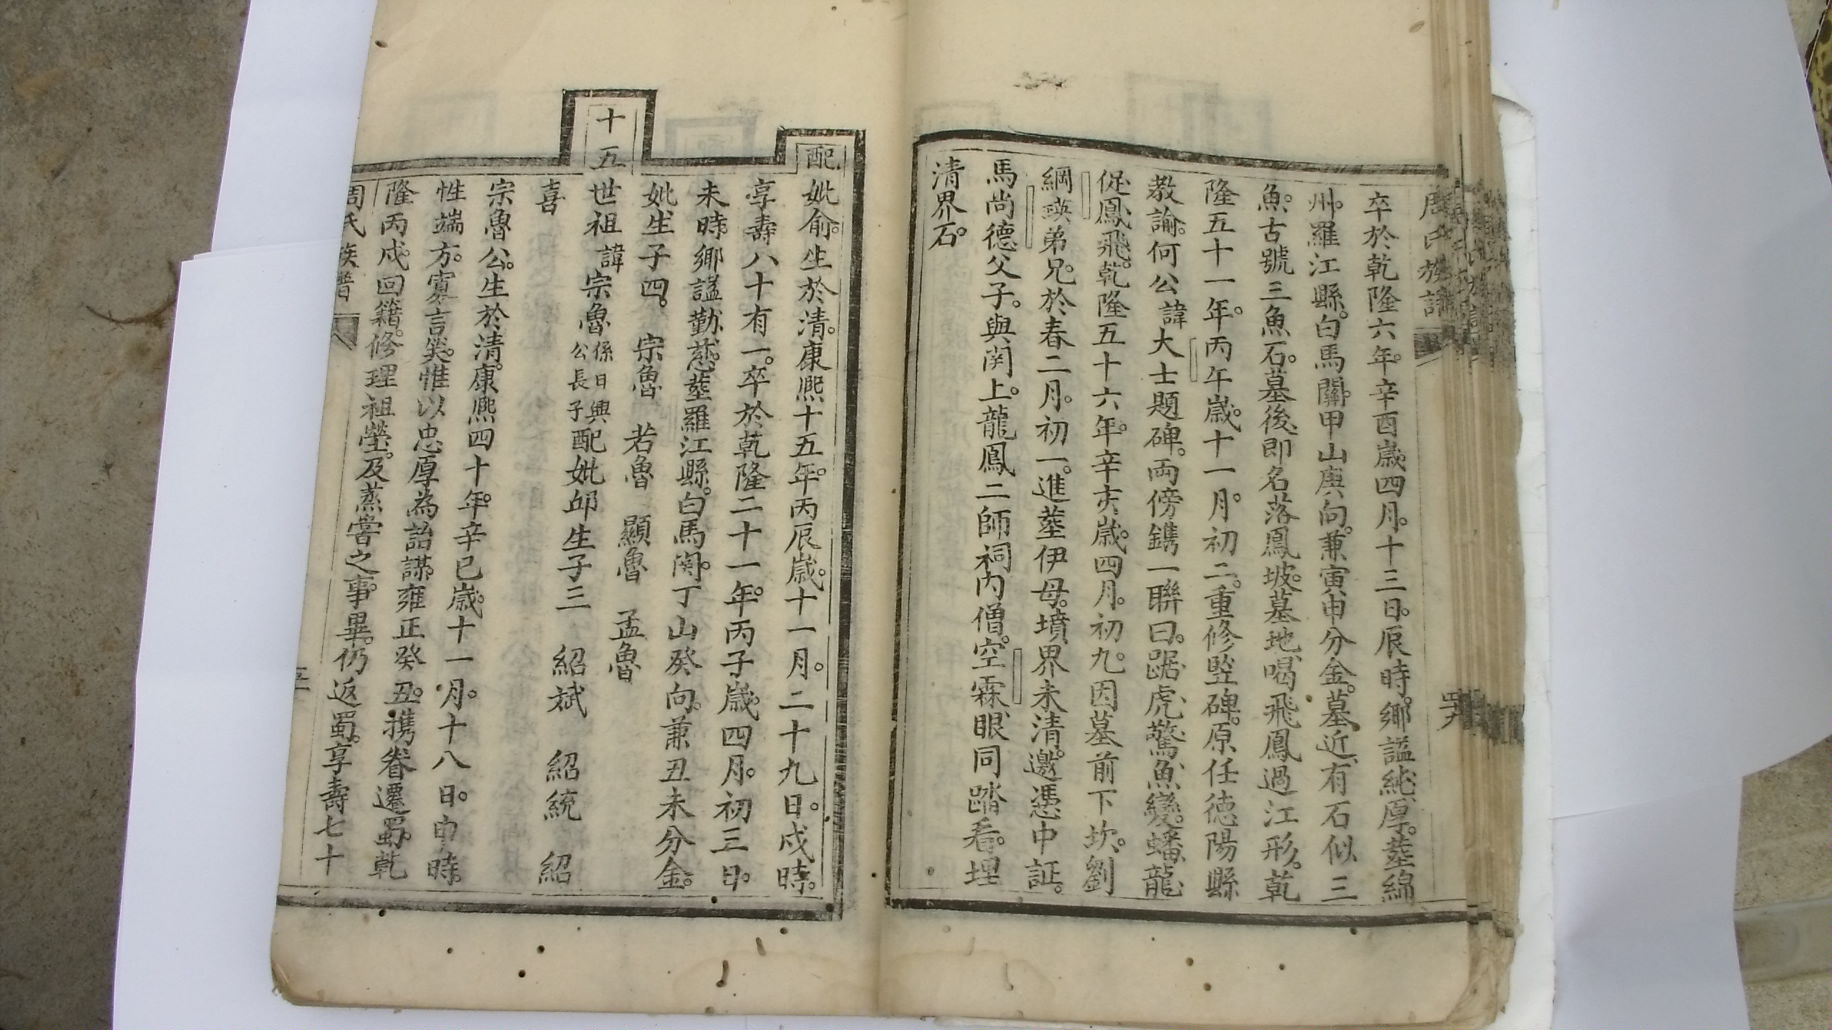 周氏族譜
卒於乾隆六年。辛酉歲四月。十三日。辰時。鄉謚純厚。塟綿
州。羅江縣。白馬關。甲山庚向。兼寅申分金。墓近有石似三
魚。古號三魚石。墓後即名落鳳坡。墓地喝飛鳳過江形。乾
隆五十一年。丙午歲。十一月。初二。重修竪碑。原任德陽縣
教諭。何公諱大士題碑。兩傍鐫一聯曰。踞虎驚魚變。蟠龍
促鳳飛。乾隆五十六年。辛亥歲。四月。初九。因墓前下坎。劉
綱瑛弟兄。於春二月。初一。進塟伊母。墳界未清。邀憑中証。
馬尚德父子。與関上。龍鳳二師祠內僧。空霖眼同踏看。埋
清界石。
配妣俞。生於清。康熙十五年。丙辰歲。十一月。二十九日。戌時。
享壽八十有一。卒於乾隆二十一年。丙子歲。四月。初三日。
未時。鄉謚勤慈。塟羅江縣。白馬関。丁山癸向。兼丑未分金。
妣生子四。 宗魯 若魯 顯魯 孟魯
十五世祖 諱宗魯係日興公長子配妣邱生子三 紹斌 紹統 紹
喜
宗魯公。生於清。康熙四十年。辛巳歲。十一月。十八日。申時。
性端方。寡言笑。惟以忠厚為詒謀。雍正癸丑。携眷遷蜀。乾
隆丙戌。回籍。修理祖塋。及蒸嘗之事。畢。仍返蜀。享壽七十
周氏族譜